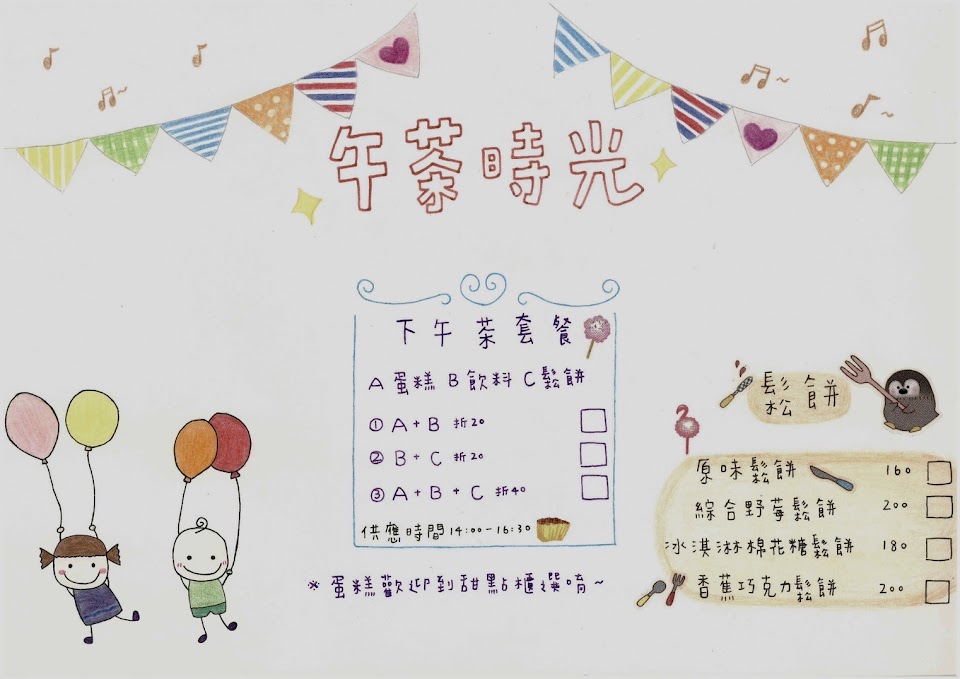 午茶時光
下午茶套餐
A蛋糕 B飲料 C鬆餅
① A+B 折20
② B+C 折20
③ A+B+C 折40
供應時間14:00-16:30
※蛋糕歡迎到甜點櫃選唷~
鬆餅
原味鬆餅 160
綜合野莓鬆餅 200
冰淇淋棉花糖鬆餅 180
香蕉巧克力鬆餅 200